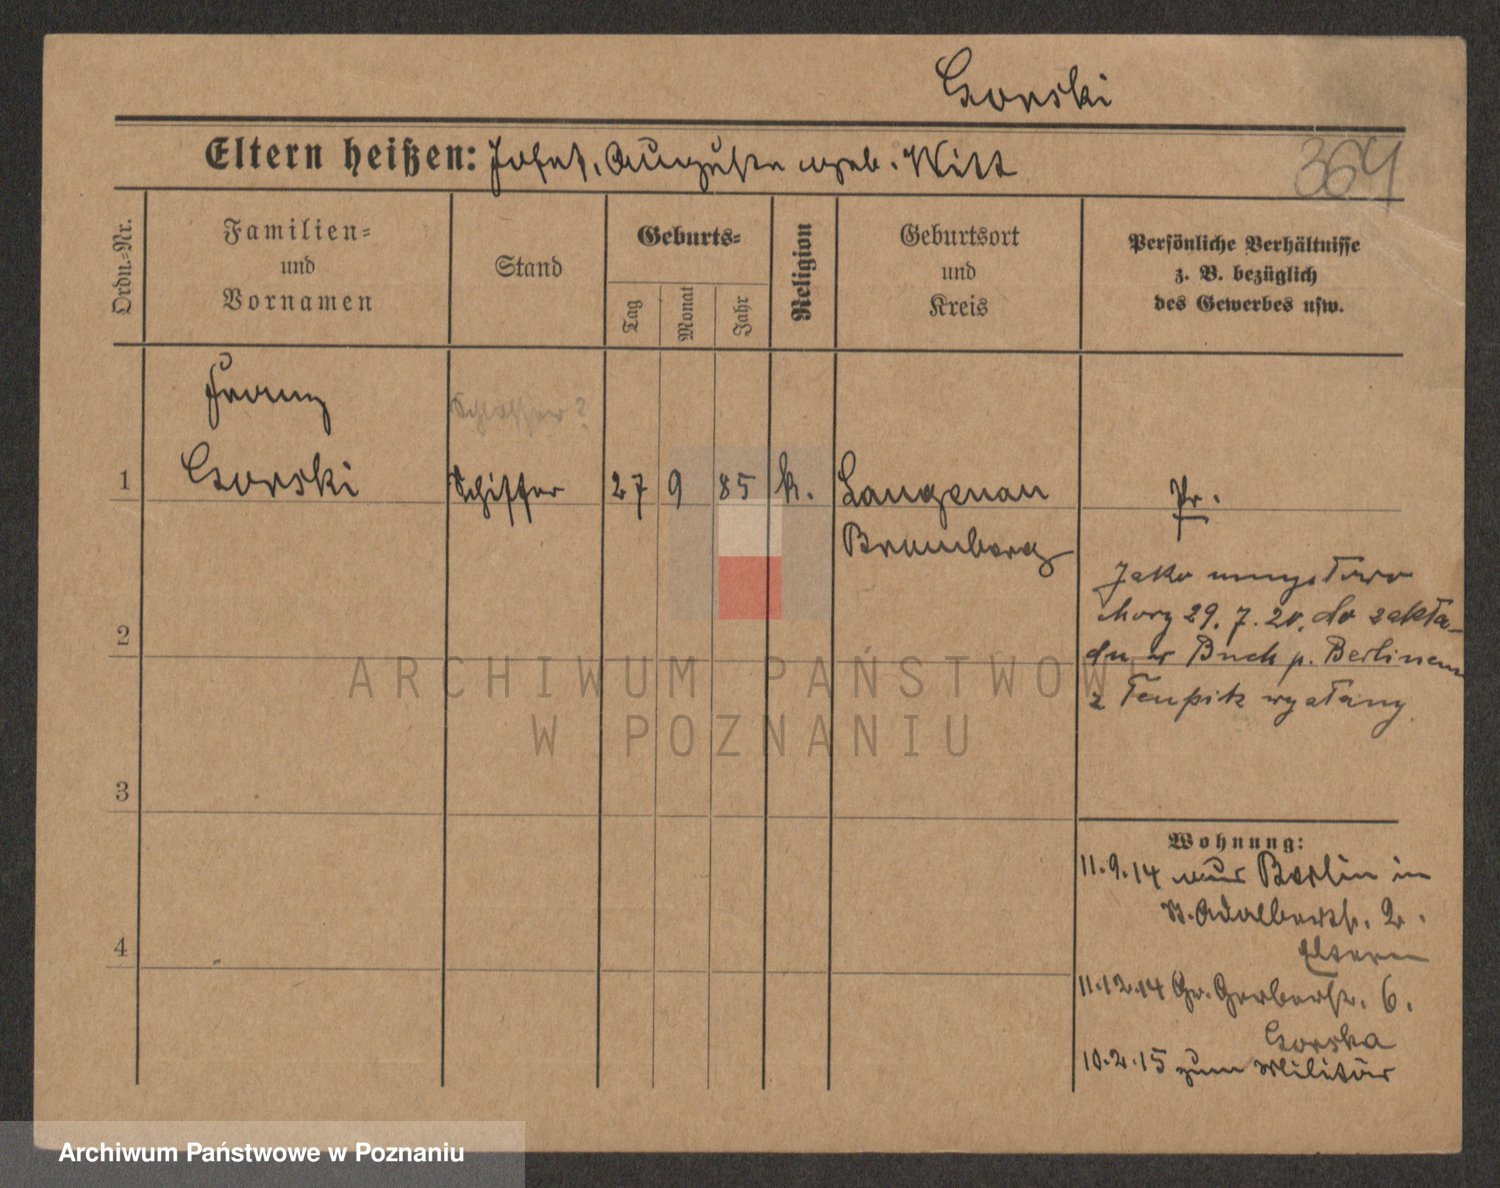 Gorski
Eltern heißen: Josef, Auguste geb. Witt
364
Ordn.-Nr.
Familien-
und
Vornamen
Stand
Geburts-
Tag
Monat
Jahr
Religion
Geburtsort
und
Kreis
Persönliche Verhältnisse
z. B. bezüglich
des Gewerbes usw.
Franz
Schlosser?
1 Gorski Schiffer 27 9 85 k. Langenau Pr.
Bromberg
Jako umysłowo
chory 29. 7. 20. do zakła-
du w Buch p. Berlinem
z Teupitz wysłany.
2
3
4
Wohnung:
11.9.14 aus Berlin in
St. Adalbertstr. 2.
Eltern
11.12.14 Gr. Gerberstr. 6.
Gorska
10.2.15 zum Militär
ARCHIWUM PAŃSTWOWE
W POZNANIU
Archiwum Państwowe w Poznaniu